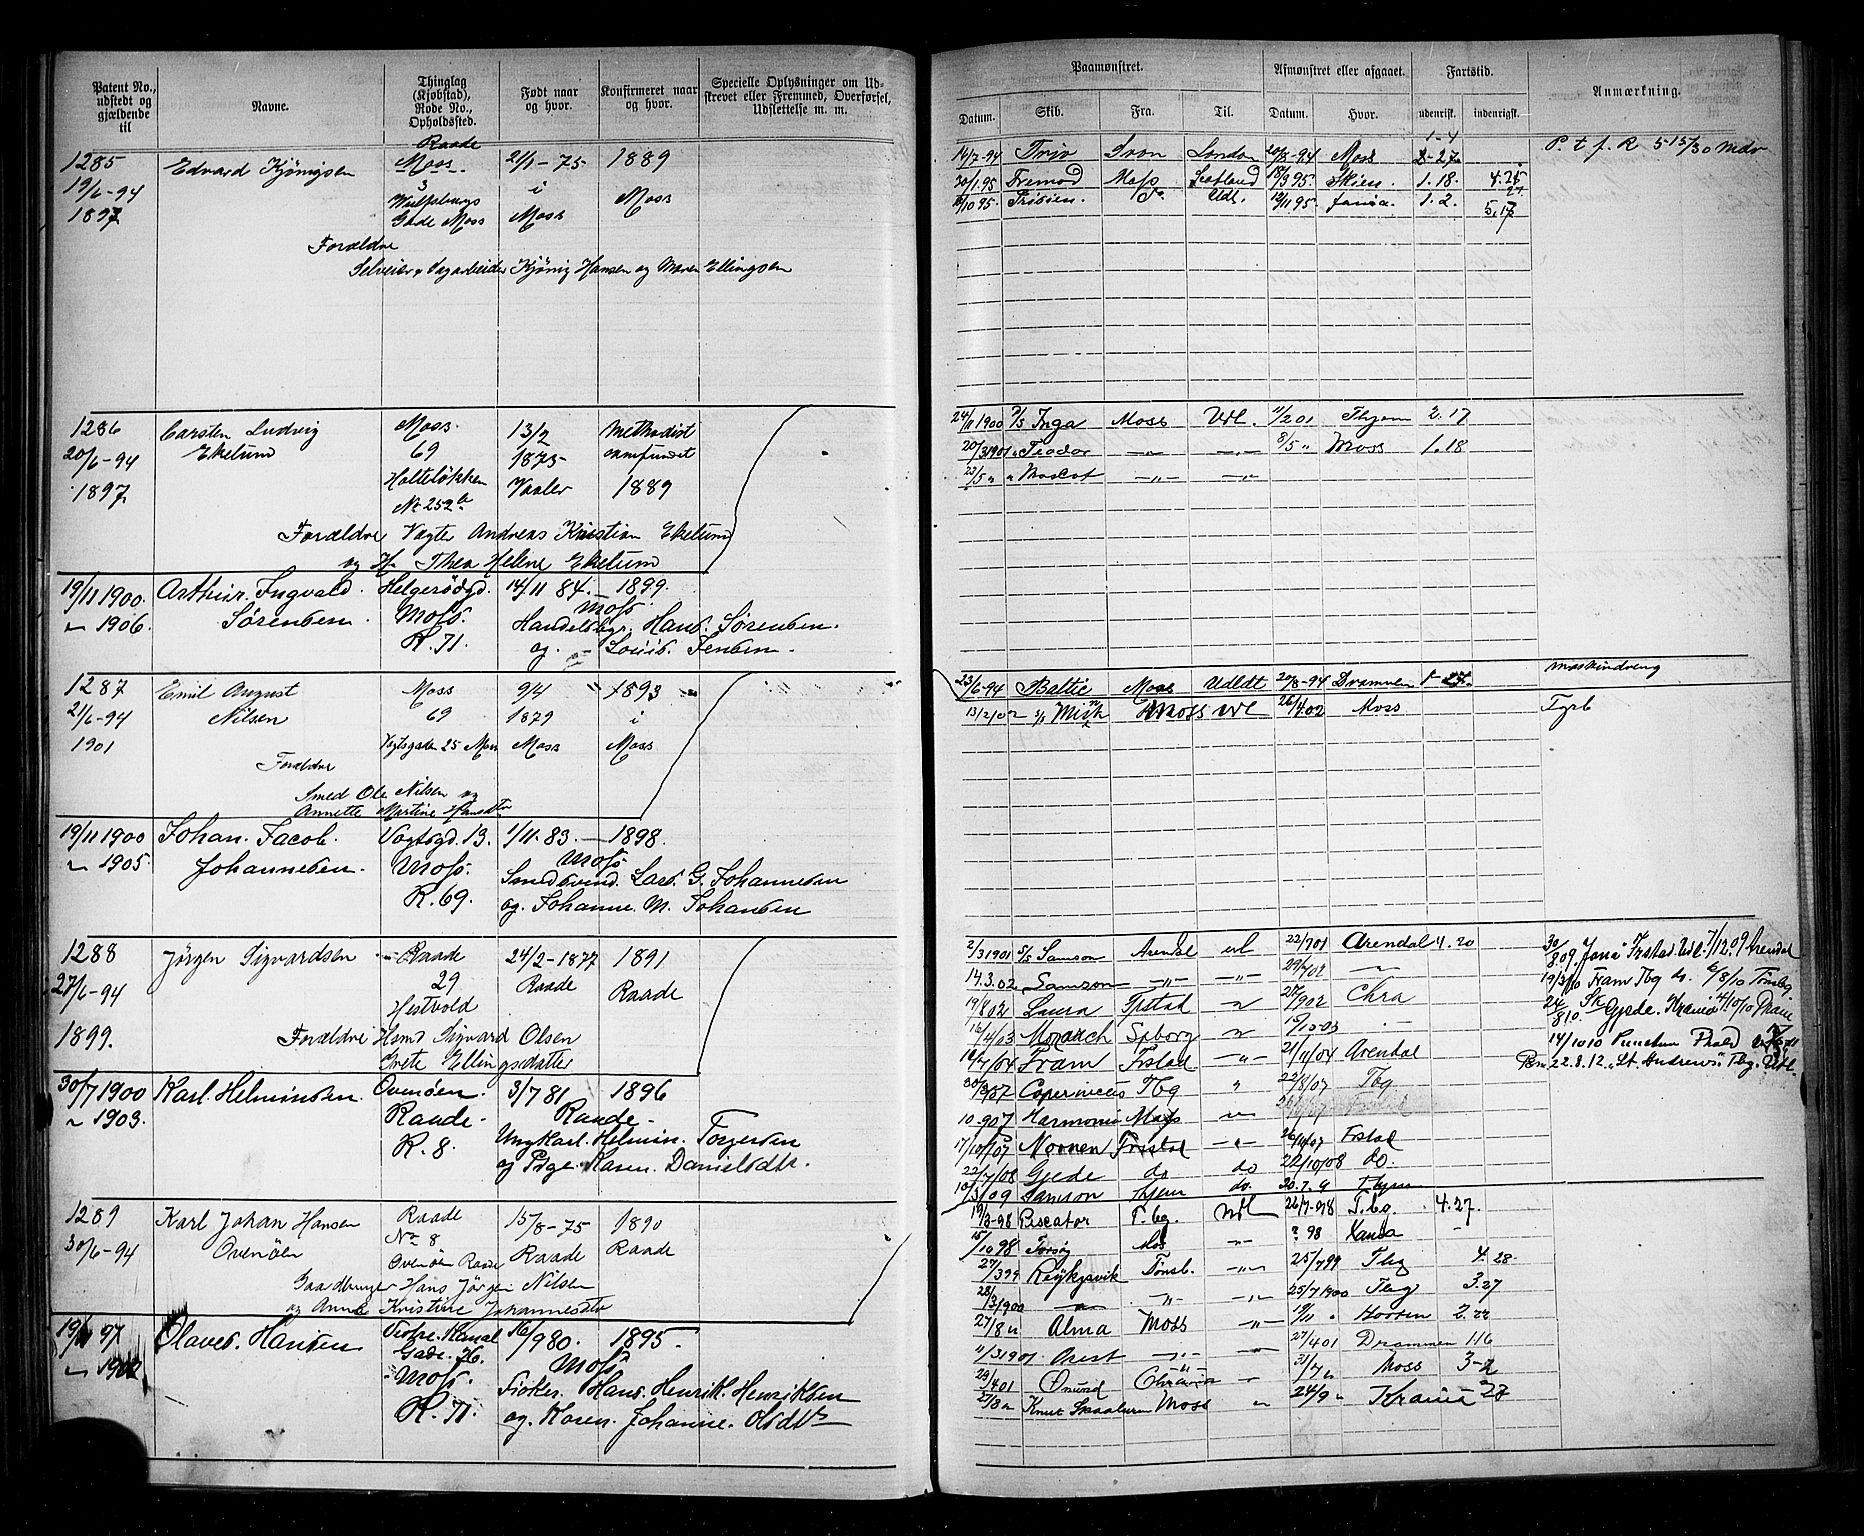 Patent No., udstedt og gjældende til
Navne.
Thinglag (Kjøbstad), Rode No., Opholdssted.
Født naar og hvor.
Konfirmeret naar og hvor.
Specielle Oplysninger om Udskrevet eller Fremmed, Overførsel, Udslettelse m. m.
1285
19/6-94
1897
Edvard Kjønigsen
Raade
Moss
3
Wulfsbergs
Gade Moss
21/1-75
i
Moss
1889
Moss
Forældre
Selveier og Dagarbeider Kjönig Hansen og Maren Ellingsen
1286
20/6-94
1897
Carsten Ludvig
Ekelund
Moss
69
Holteløkken
No 252 b
13/2
1875
Vaaler
Methodist
samfundet
1889
Forældre Vagter Andreas Kristian Ekelund
og H. Thea Helene Ekelund
19/11 1900
" 1906.
Arthur. Ingvald.
Sørensen.
Helgerødgd.
Moss.
R. 71.
14/11 84. — 1899.
Moss.
Handelsbgr. Hans. Sørensen.
og. Louis. Jensen.
1287
21/6-94
1901
Emil August
Nilsen
Moss
69
Vogtsgaden 25 Moss
9/4
1879
Moss
1893
i
Moss
Forældre
Smed Ole Nilsen og
Annette Martine Hansdtr
19/11 1900
" 1905.
Johan. Jacob.
Johannesen.
Vogtsgd. 13.
Moss.
R. 69.
1/11. 83. — 1898.
Moss.
Smedsvend. Lars. G. Johannesen
og. Johanne. M. Johansen
1288
27/6-94
1899.
Jørgen Sigvardsen
Raade
29
Hestvold
24/2-1877
Raade
1891
Raade
Forældre Hsmd Sigvard Olsen
Grete Ellingsdatter
30/7 1900
" 1903.
Karl. Helminsen.
Ovenøen.
Raade.
R. 8.
3/7 81
1896
Raade.
Ungkarl. Helmin. Torgersen
og Pige. Karen. Danielsdtr.
1289
30/6-94
Karl Johan Hansen
Ovenöen
Raade
No 8
Ovenöen Raade
15/8-75
Raade
1890
Raade
Gaardbruger Hans Jörgen Nilsen
og Anne Kristine Johannesdtr
19/11 97
Olaves. Hansen
Vestre. Kanal
Gade. 76.
Moss.
R. 71.
16/9 80.
1895.
Moss
Fisker. Hans. Henrik. Henriksen
og. Karen. Johanne. Olsdtr
Paamønstret.
Afmønstret eller afgaaet.
Fartstid.
Anmærkning.
Datum. Skib. Fra. Til. Datum. Hvor. udenrigsk. indenrigsk.
1-4
14/7-94 Trio Svon London 20/8-94 Moss 2-27
P. t. f. R 5-15/30 mdr
30/1.95 Fremad Moss Scotland 18/9 95 Skien. 1.18. 4.25
/10 95. do. Udl. 12/11 95 1.2. 5.17
24/11 1900 Inga Moss Udl. 11/2 01 Thjem 2.17
20/3 1901 " Teodor —"— —"— 8/5 " Moss 1.18
23/5 " " Mascot —"— —"—
maskindreng
23/6-94 Baltic Moss Udldt 20/8-94 Drammen 1-27.
13/2/02 Mick Moss Udl 26/4 02 Moss
Fyrb
2/3 1901 S/S Samson Arendal udl 22/7 01 Arendal 4.20
14.3.02 Samson —"— —"— 29/7 02
19/8 02 Laura Fstad " 28/9 02 Chra
16/4/03 Monarch Spborg " 15/10-03
16/7/04 Fram Fstad —"— 21/11/04 Arendal
30/3 07 Copernicus Tbg " 22/8/07 Tbg
10.9 07 Harmonie Moss "
17/10/07 Nornen Frstad —"— 26/11/07 Frstad
22/7/08 Gjede do do 22/10/08 do.
10/3/09 Samson thjem do. 20.7.9 thjem
30/8.09. Frstad Udl. 7/12.09 Arendal
19/3/10 Fram Tbg do. 6/8/10 Tönsbg.
24/8 10. Gjede. Krania 4/10/10 Dram
14/10 10
22.8.12 "St Andrews" Tbg. Udl.
19/3-98 Piscator T.bg. Udl 26/7-98 T.bg. 4.27.
15/10 98 Mos —"— ? 98
27/3 99 Reykjavik Tönsb. —"— 25/7 99 Tbg 4.28.
28/3 1900 —"— —"— —"— 25/7 1900 Tbg 3.27
27/8 " Alma Moss —"— 19/11 " Horten 2.22
11/3 1901. Orest —"— 27/4 01 Drammen 1 16
29/4 01 Önund Christiania " 31/7 " Moss 3-2
27/8 " Knut Skaaluren Moss " 24/9 " Krania 27